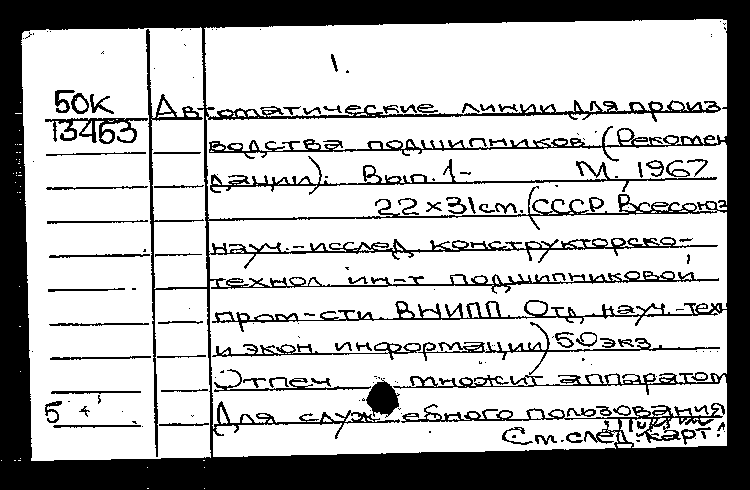 1.
50К Автоматические линии для произ-
13463 водства подшипников (Рекомен
дации). Вып. 1- М., 1967
22×31 cm. (СССР. Всесоюз
науч.-исслед. конструкторско-
технол. ин-т подшипниковой
пром-сти. ВНИПП. Отд. науч.-техн
и экон. информации) 50 экз.
Отпеч. множит. аппаратом
5 4 Для служебного пользования
См. след. карт.